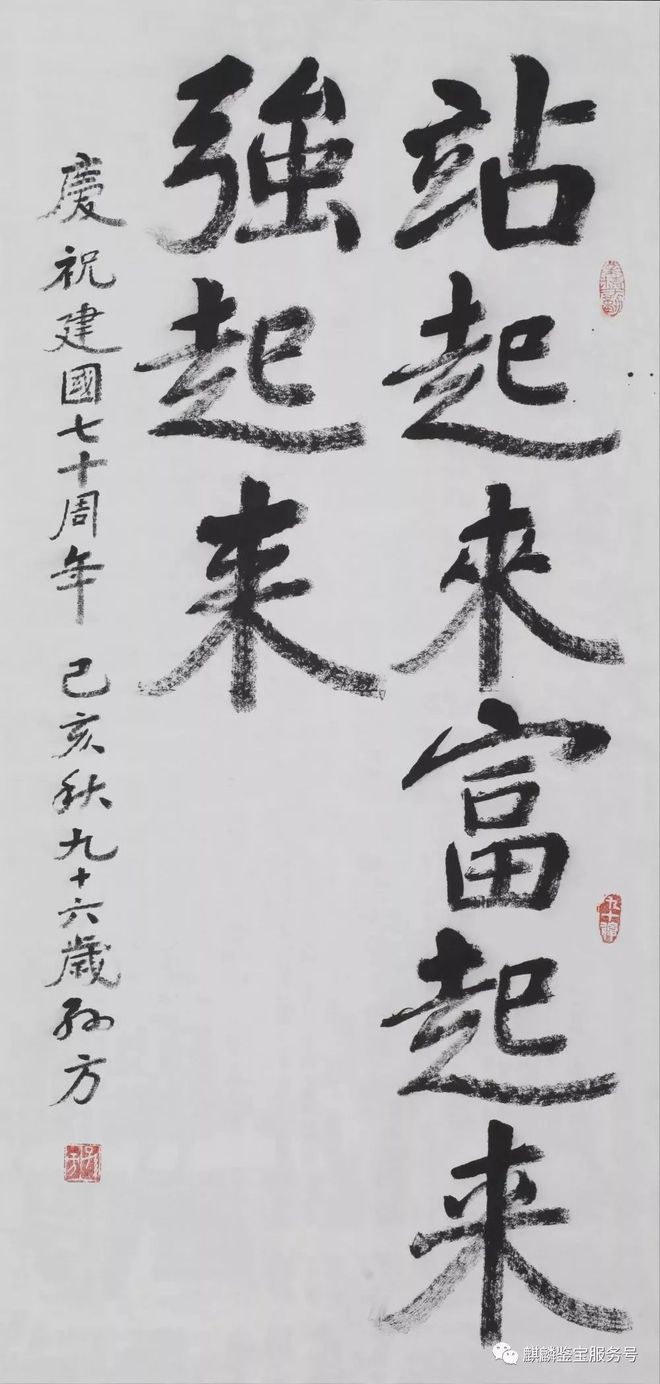 站起來富起来
強起来
慶祝建國七十周年 己亥秋九十六歲孙方
九十後
麒麟鉴宝服务号